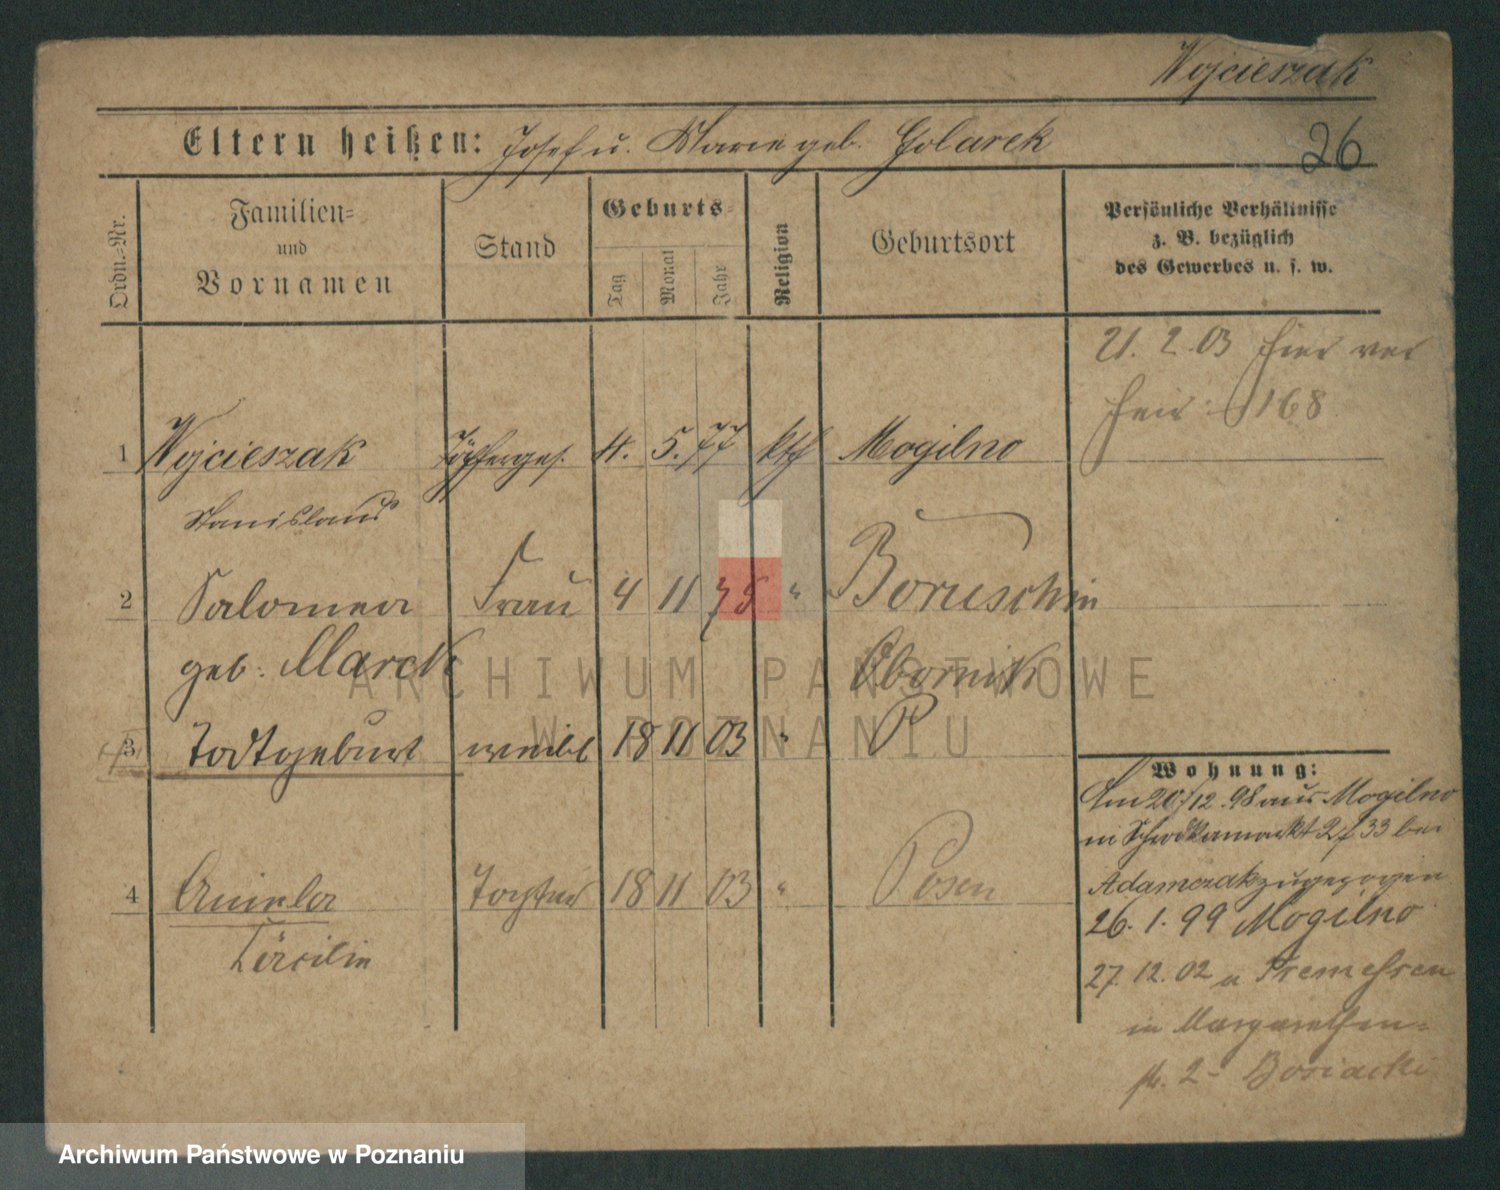 Wojcieszak
Eltern heißen: Josef u. Marie geb. Golarek
26
Ordn.-Nr.
Familien-
und
Vornamen
Stand
Geburts-
Tag
Monat
Jahr
Religion
Geburtsort
Persönliche Verhältnisse
z. B. bezüglich
des Gewerbes u. s. w.
21. 2. 03 hier ver
heir. 168
1 Wojcieszak Töpferges. 4. 5. 77 kth Mogilno
Stanislaus
2 Salomea Frau 4 11 75 " Boruschin
geb. Marck Obornik
3 Todtgeburt weibl 18 11 03 " P
Wohnung:
Am 20/12.98 aus Mogilno
in Schrodkamarkt 2 33 bei
Adamczak zugezogen
4 Aniela Tochter 18 11 03 " Posen
26. 1. 99 Mogilno
Cäcilie
27. 12. 02 a Tremessen
in Margarethen-
str. 2 - Bosiacki
ARCHIWUM PAŃSTWOWE
W POZNANIU
Archiwum Państwowe w Poznaniu